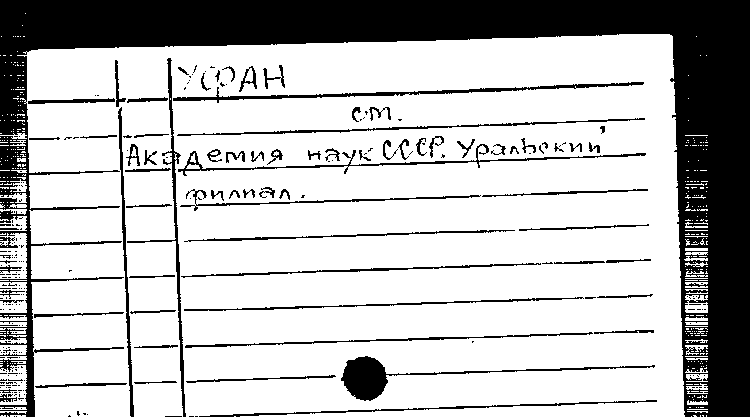 УФАН
см.
Академия наук СССР. Уральский
филиал.